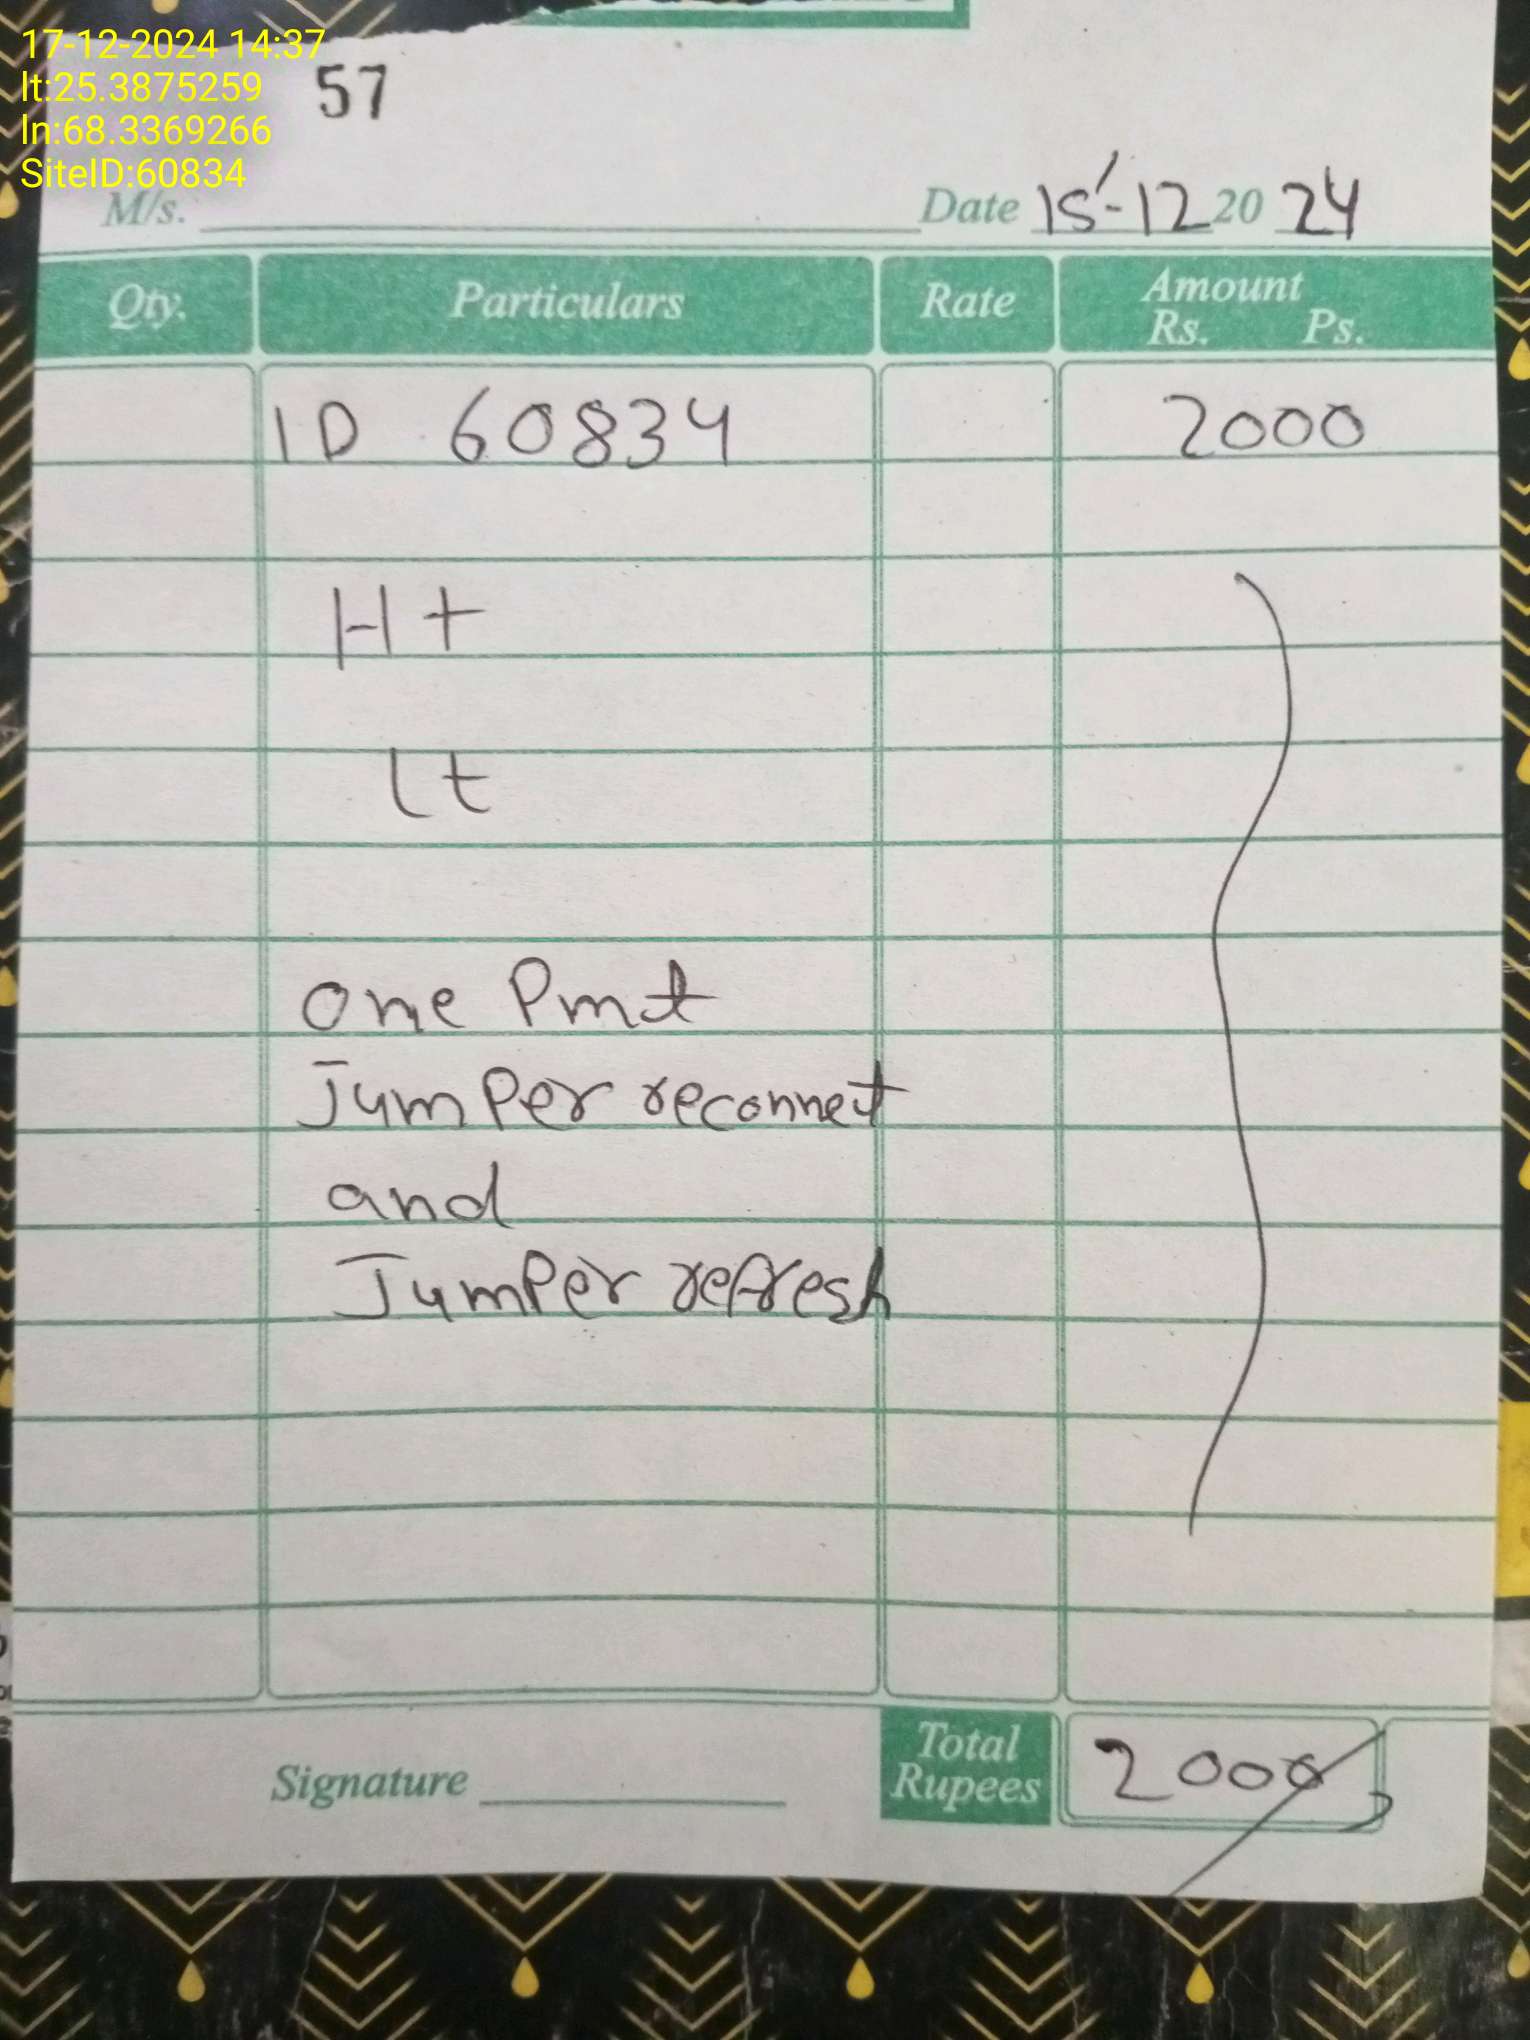 17-12-2024 14:37
lt:25.3875259
ln:68.3369266
SiteID:60834
57
M/s. Date 15-12 20 24
Qty. Particulars Rate Amount Rs. Ps.
ID 60834 2000
Ht
Lt
One Pmt
Jumper reconnect
and
Jumper refresh
Signature Total Rupees 2000